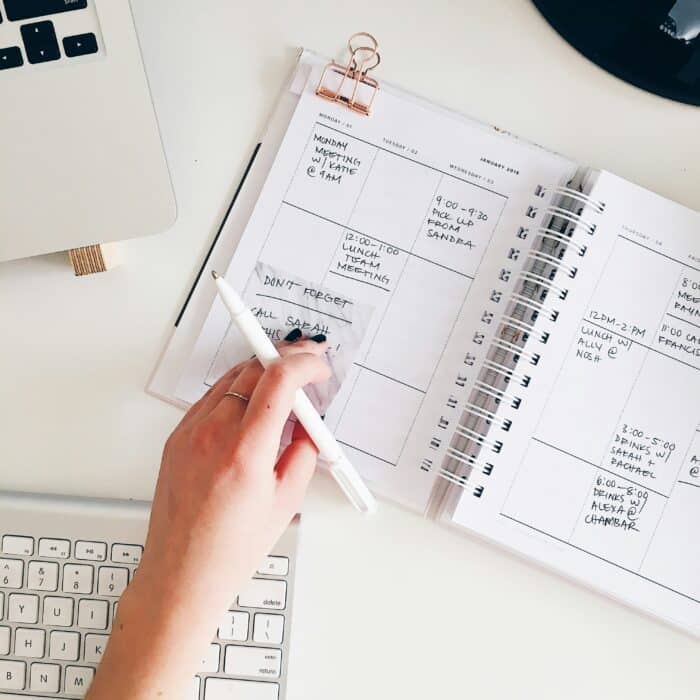 JANUARY 2018
MONDAY / 01
TUESDAY / 02
WEDNESDAY / 03
MONDAY
MEETING
W/ KATIE
@ 9AM
12:00-1:00
LUNCH
TEAM
MEETING
9:00-9:30
PICK UP
FROM
SANDRA
DON'T FORGET
CALL SARAH
THIS
!
THURSDAY / 04
12PM-2PM
LUNCH W/
ALLY @
NOSH
3:00-5:00
DRINKS W/
SARAH +
RACHAEL
6:00-8:00
DRINKS W/
ALEXA @
CHAMBAR
11:00
CALL
FRANCIS
delete
return
6
7
8
9
Y
U
I
O
H
J
K
L
N
M